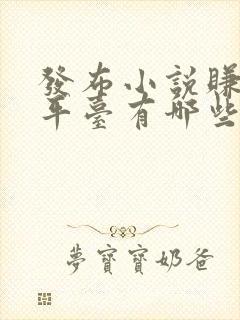 發布小説賺
平臺有哪些
夢寶寶奶爸